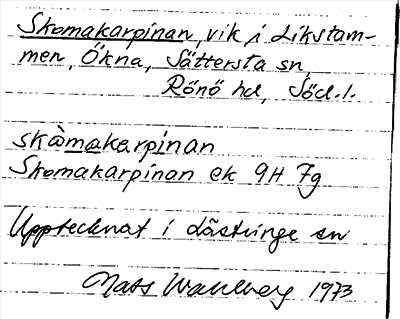 Skomakarpinan, vik i Likstam-
men, Ökna, Sättersta sn,
Rönö hd, Söd. l.
skòmakarpinan
Skomakarpinan ek 9H 7g
Upptecknat i Lästringe sn
Mats Wahlberg 1973